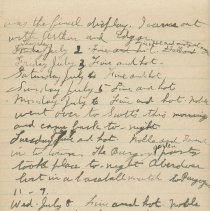 was the final display. I came out
with Arthur and Edgar.
July 2 Fine and hot.
Friday July 3 Fine and hot.
Saturday 4 Fine and hot
Sunday July 5 Fine and hot
Monday July 6 Fine and hot. Noble
went over to Scotts this morning
and came back to-night
Tuesday and hot. Noble and
in to town. The Bazaar
took place to-night Aberdeen
lost in a baseball match to Bangor
11 - 9.
Wed. July 8 Fine and hot Noble